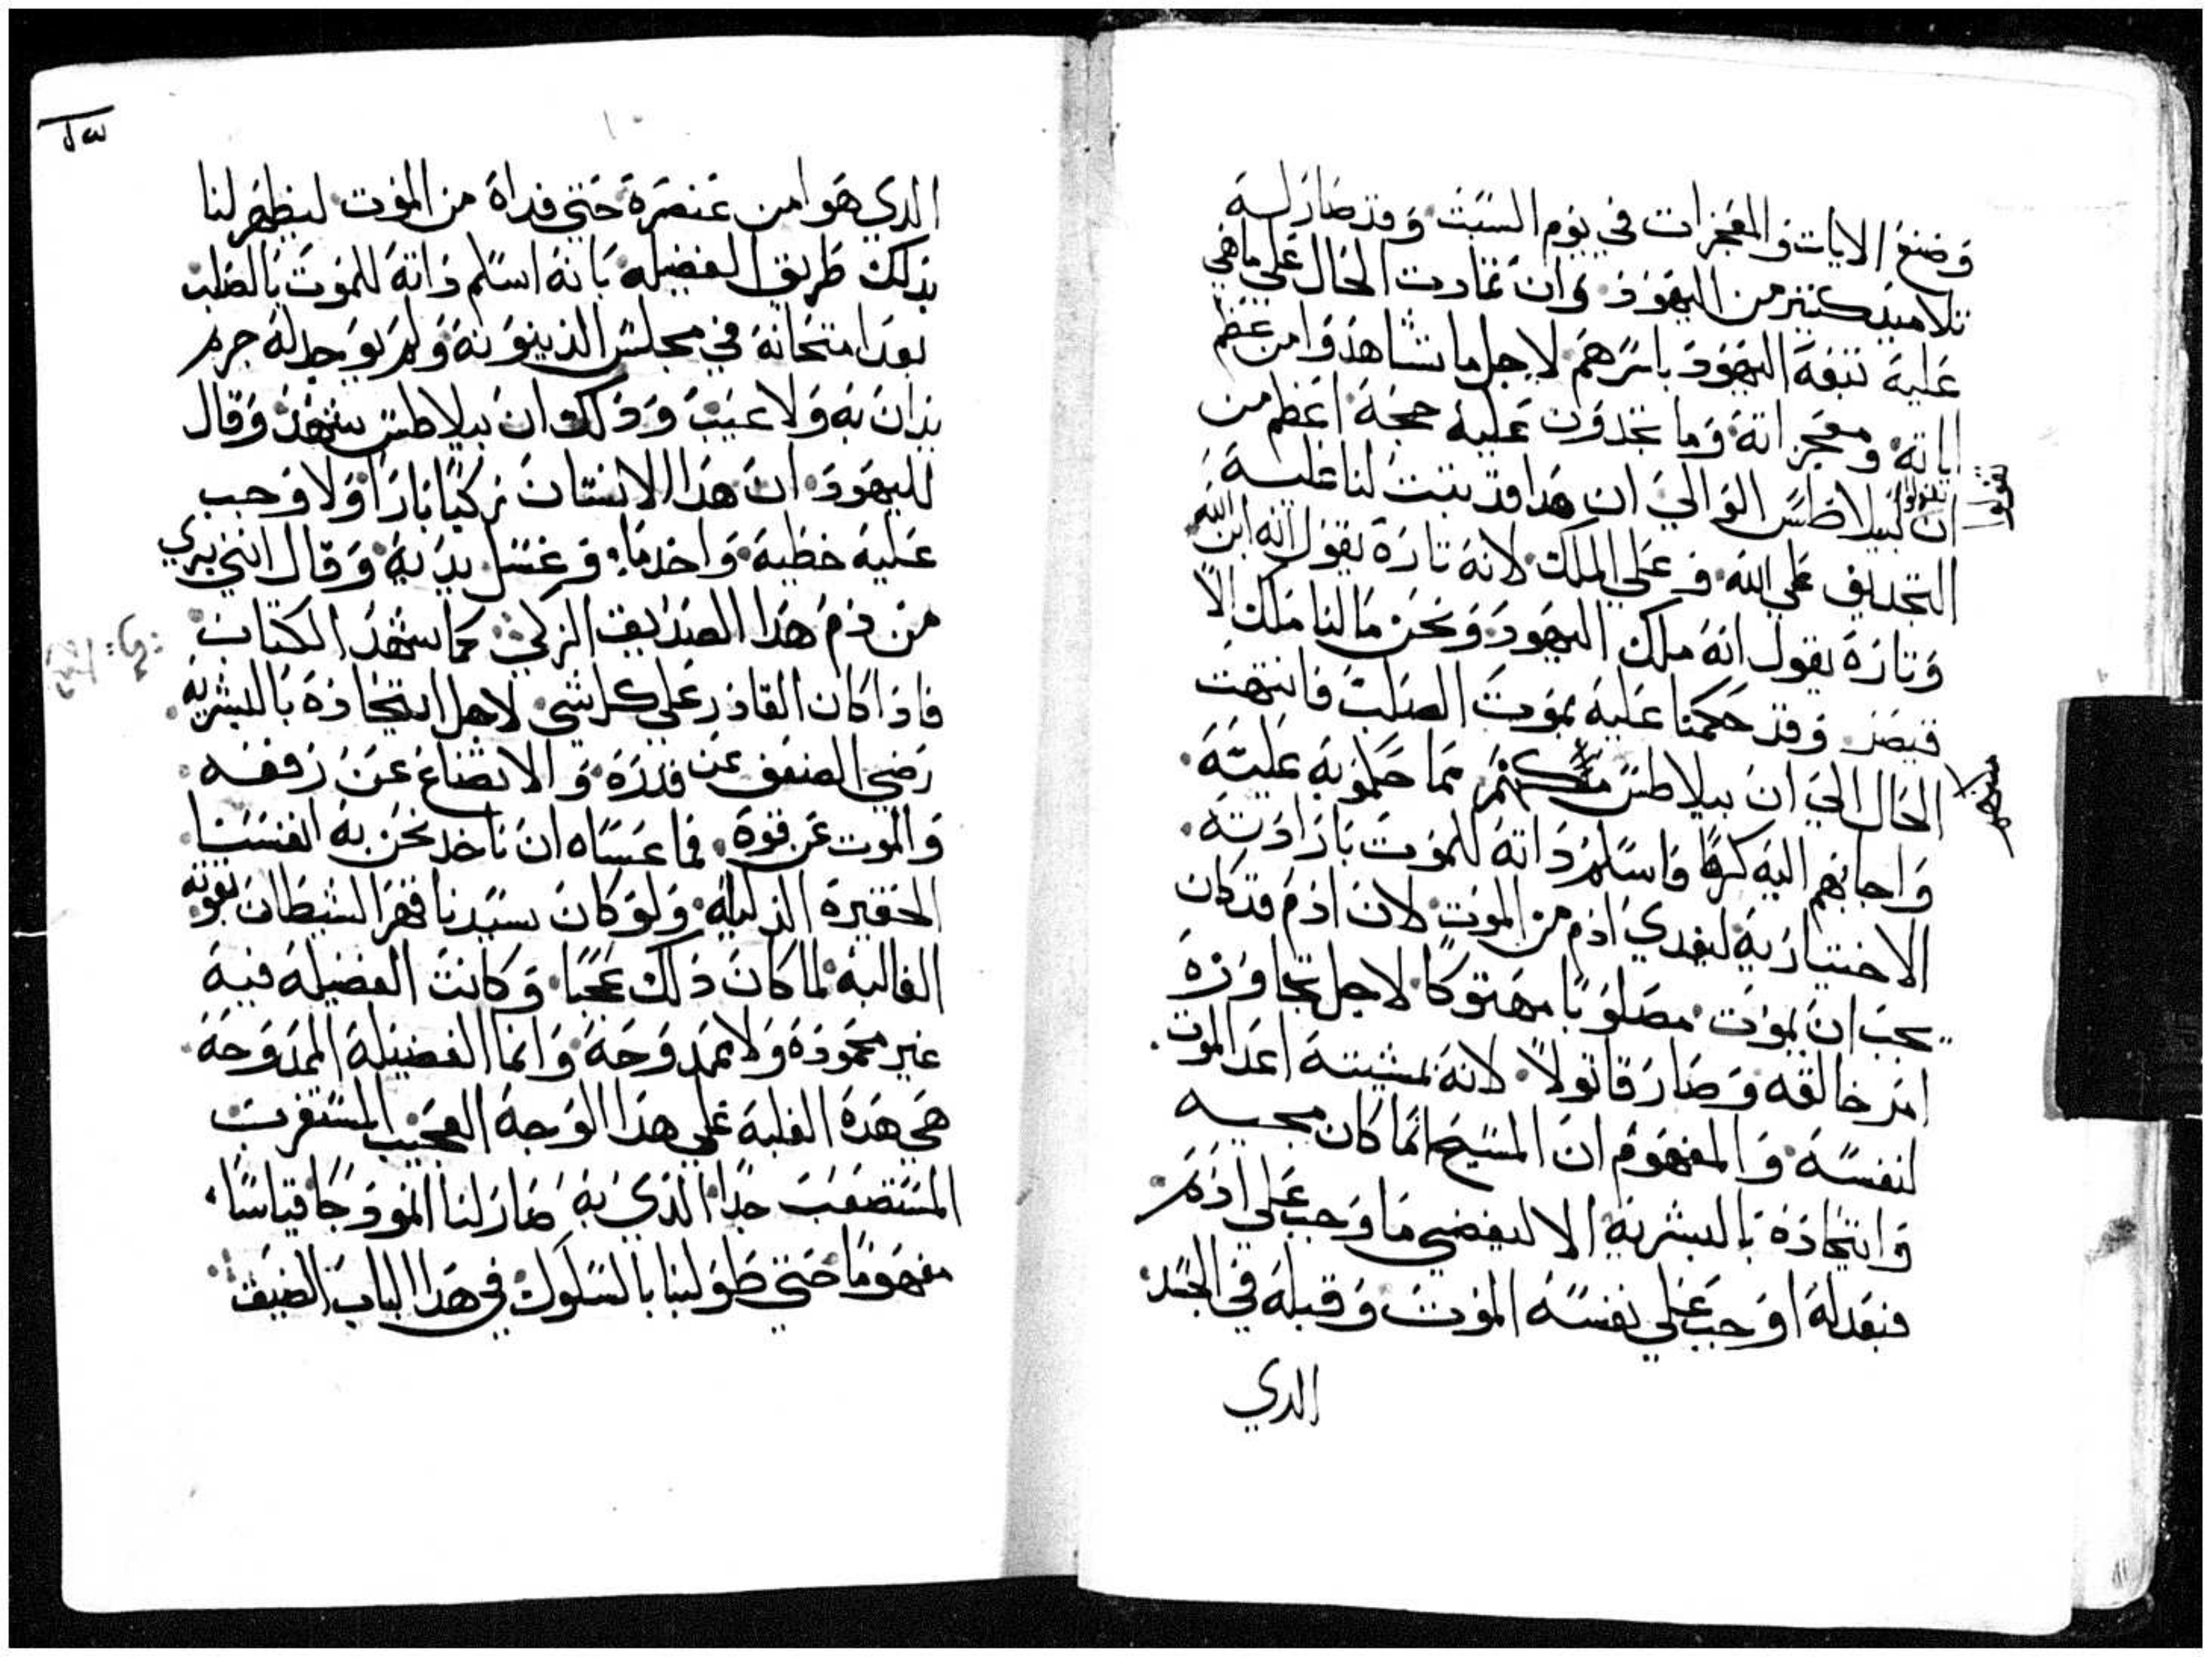 وصنع الايات والمعجزات في يوم السبت وقد صار له
تلاميد كتير من اليهود وان تمادت الحال علي ما هي
عليه تتبعه اليهود باسرهم لاجل ما تشاهدوا من عظم
اياته ومعجزاته وما تجدون عليه حجه اعظم من
ان تقولوا لبيلاطس الوالي ان هدا قد تبت لنا عليه
تقولوا
التجديف علي الله وعلي الملك لانه تارة يقول انه ابن الله
وتارة يقول انه ملك اليهود ونحن ما لنا ملك الا
قيصر وقد حكمنا عليه بموت الصلب فانتهت
الحال الي ان بيلاطس مكنهم مما حملوه عليه
منهم
واجابهم اليه كرها فاسلم داته للموت بارادته
الاختياريه ليفدي ادم من الموت لان ادم قد كان
يجب ان يموت مصلوبا مهتوكا لاجل تجاوزه
امر خالقه وصار قاتولا لانه بمشيته اعد الموت
لنفسه والمفهوم ان المسيح انما كان مجيه
واتحاده بالبشريه الا ليقضي ما وجب علي ادم
فبعدله اوجب علي نفسه الموت وقبله في الجسد
الدي
الدي هو من عنصره حتي فداه من الموت ليظهر لنا
بدلك طريق الفضيله بانه اسلم داته للموت بالصلب
بعد امتحانه في مجلس الدينونه ولم يوجد له جرم
يدان به ولا عيب ودلك ان بيلاطس شهد وقال
لليهود ان هدا الانسان زكيا بارا ولا وجب
عليه خطيه واحده وغسل يديه وقال انني بري
من دم هدا الصديق الزكي كما شهد الكتاب
فادا كان القادر علي كل شي لاجل اتحاده بالبشريه
رضي الضعف عن قدره والاتضاع عن رفعه
والموت عن قوه فما عساه ان ناخد نحن به انفسنا
الحقيرة الدليله ولو كان سيدنا قهر الشيطان بقوته
الغالبه لما كان دلك عجبا وكانت الفضيله فيه
غير محموده ولا ممدوحه وانما الفضيله الممدوحه
هي هده الغلبه علي هدا الوجه العجيب المستغرب
المستصعب جدا الدي به صار لنا انمودجا قياسا
مفهوما حتي طولبنا بالسلوك في هدا الباب الضيق